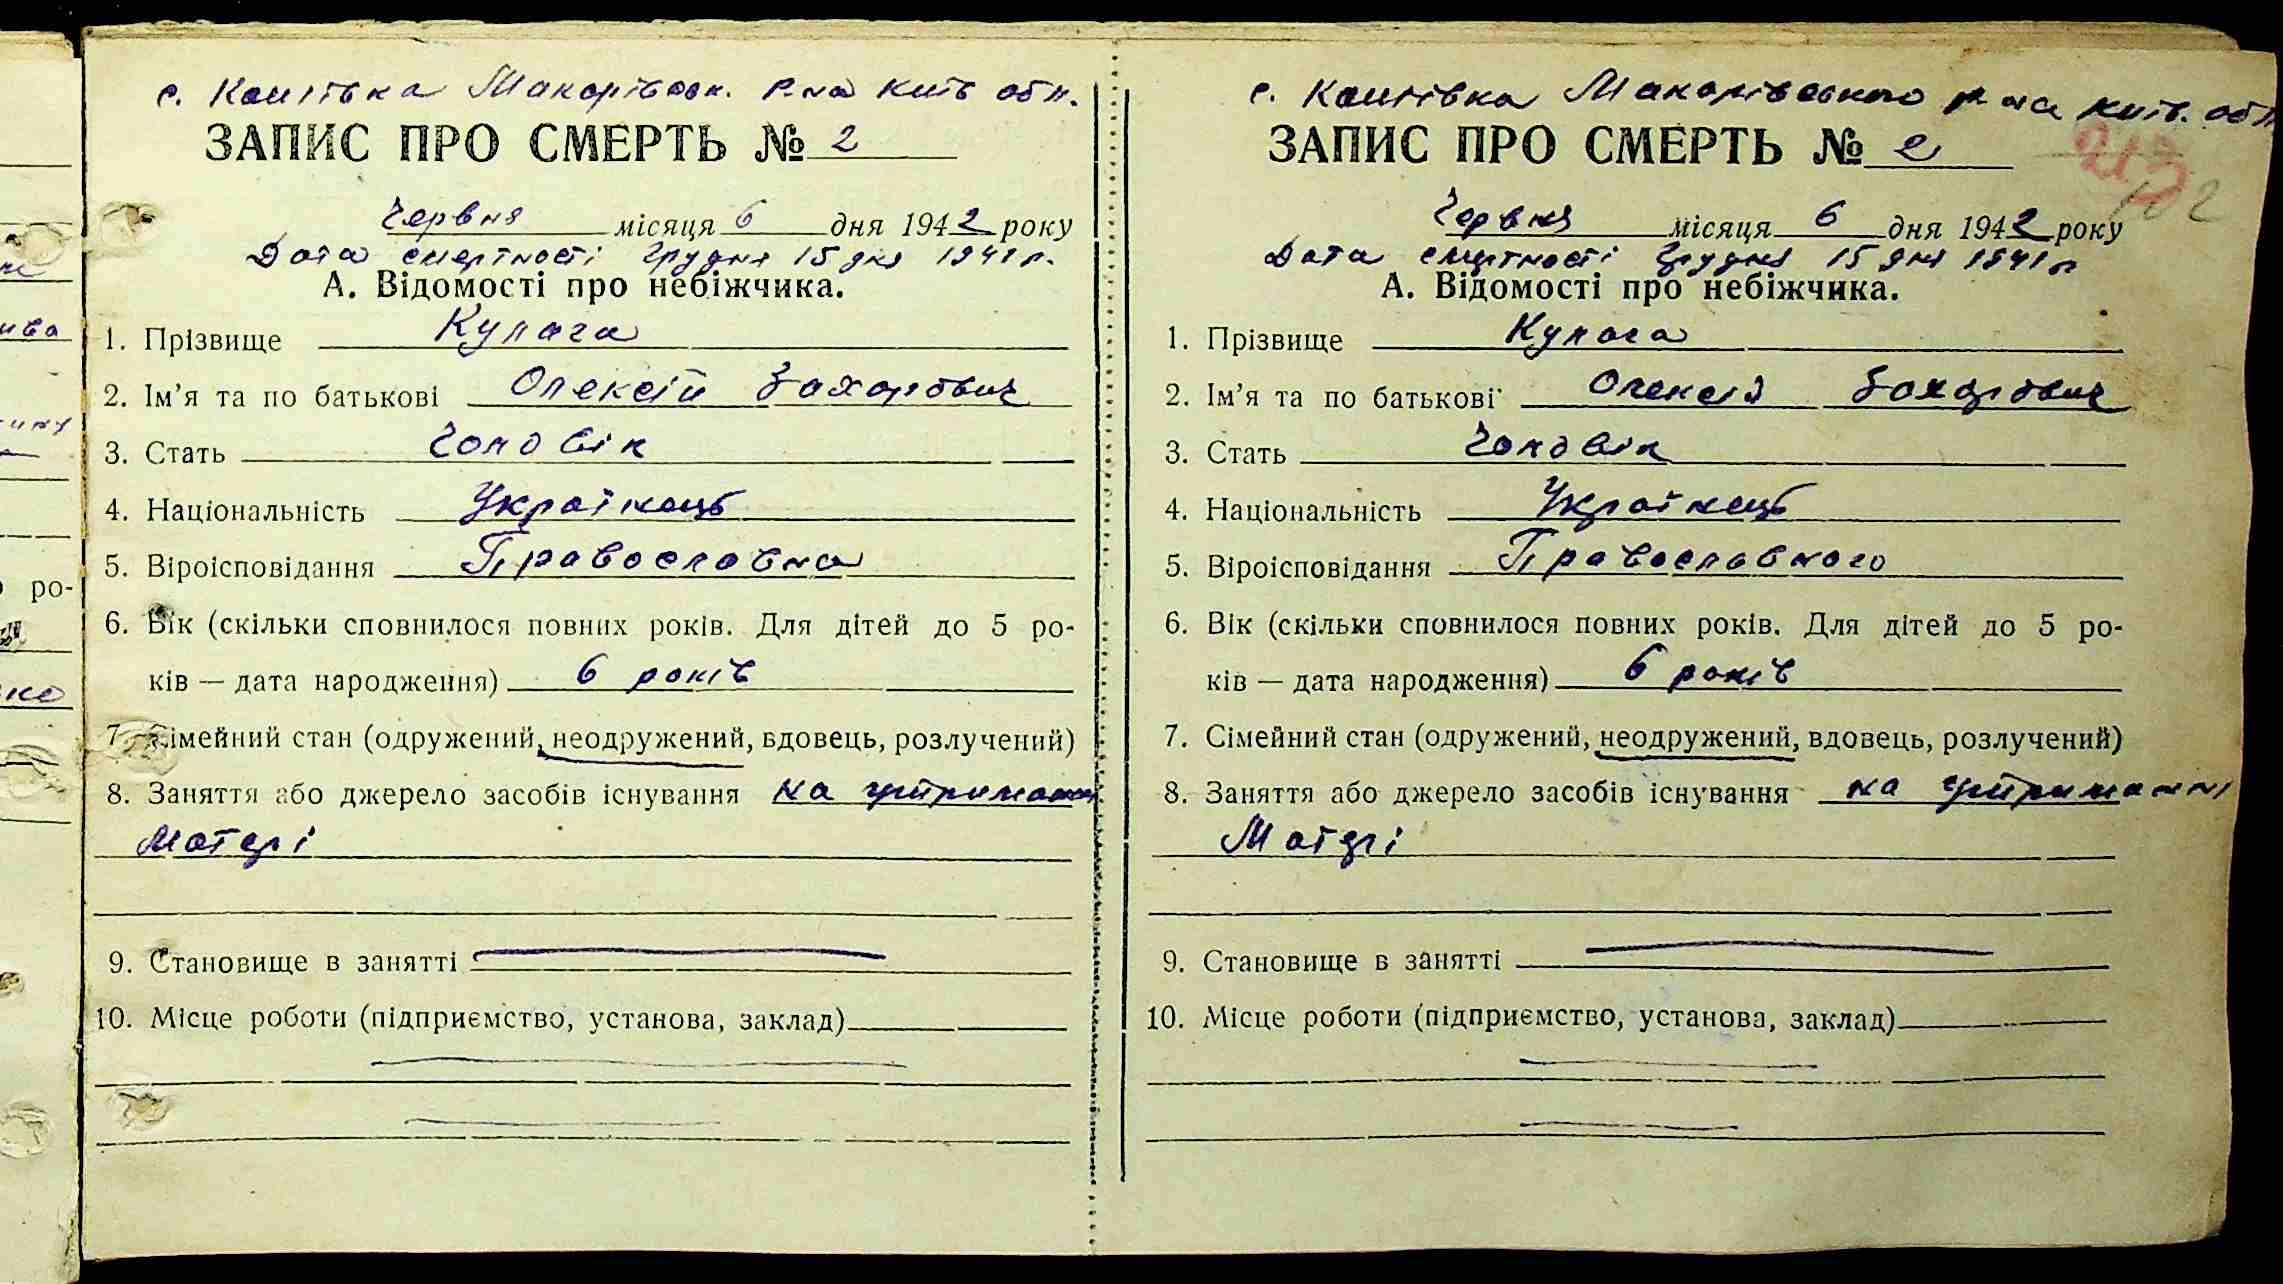 с. Кашівка Макарівськ. р-на Київ обл.
ЗАПИС ПРО СМЕРТЬ № 2
Червня місяця 6 дня 1942 року
Дата смертності грудня 15 дня 1941 р.
А. Відомості про небіжчика.
1. Прізвище Кулага
2. Ім’я та по батькові Олексій Захарович
3. Стать Чоловік
4. Національність Українець
5. Віроісповідання Православна
6. Вік (скільки сповнилося повних років. Для дітей до 5 ро-
ків — дата народження) 6 років
7. Сімейний стан (одружений, неодружений, вдовець, розлучений)
8. Заняття або джерело засобів існування на утриманні
Матері
9. Становище в занятті
10. Місце роботи (підприємство, установа, заклад)
с. Кашівка Макарівського р-на Київ. обл.
ЗАПИС ПРО СМЕРТЬ № 2
Червня місяця 6 дня 1942 року
Дата смертності грудня 15 дня 1941 р
А. Відомості про небіжчика.
1. Прізвище Кулага
2. Ім’я та по батькові Олексій Захарович
3. Стать Чоловік
4. Національність Українець
5. Віроісповідання Православного
6. Вік (скільки сповнилося повних років. Для дітей до 5 ро-
ків — дата народження) 6 років
7. Сімейний стан (одружений, неодружений, вдовець, розлучений)
8. Заняття або джерело засобів існування на утриманні
Матері
9. Становище в занятті
10. Місце роботи (підприємство, установа, заклад)